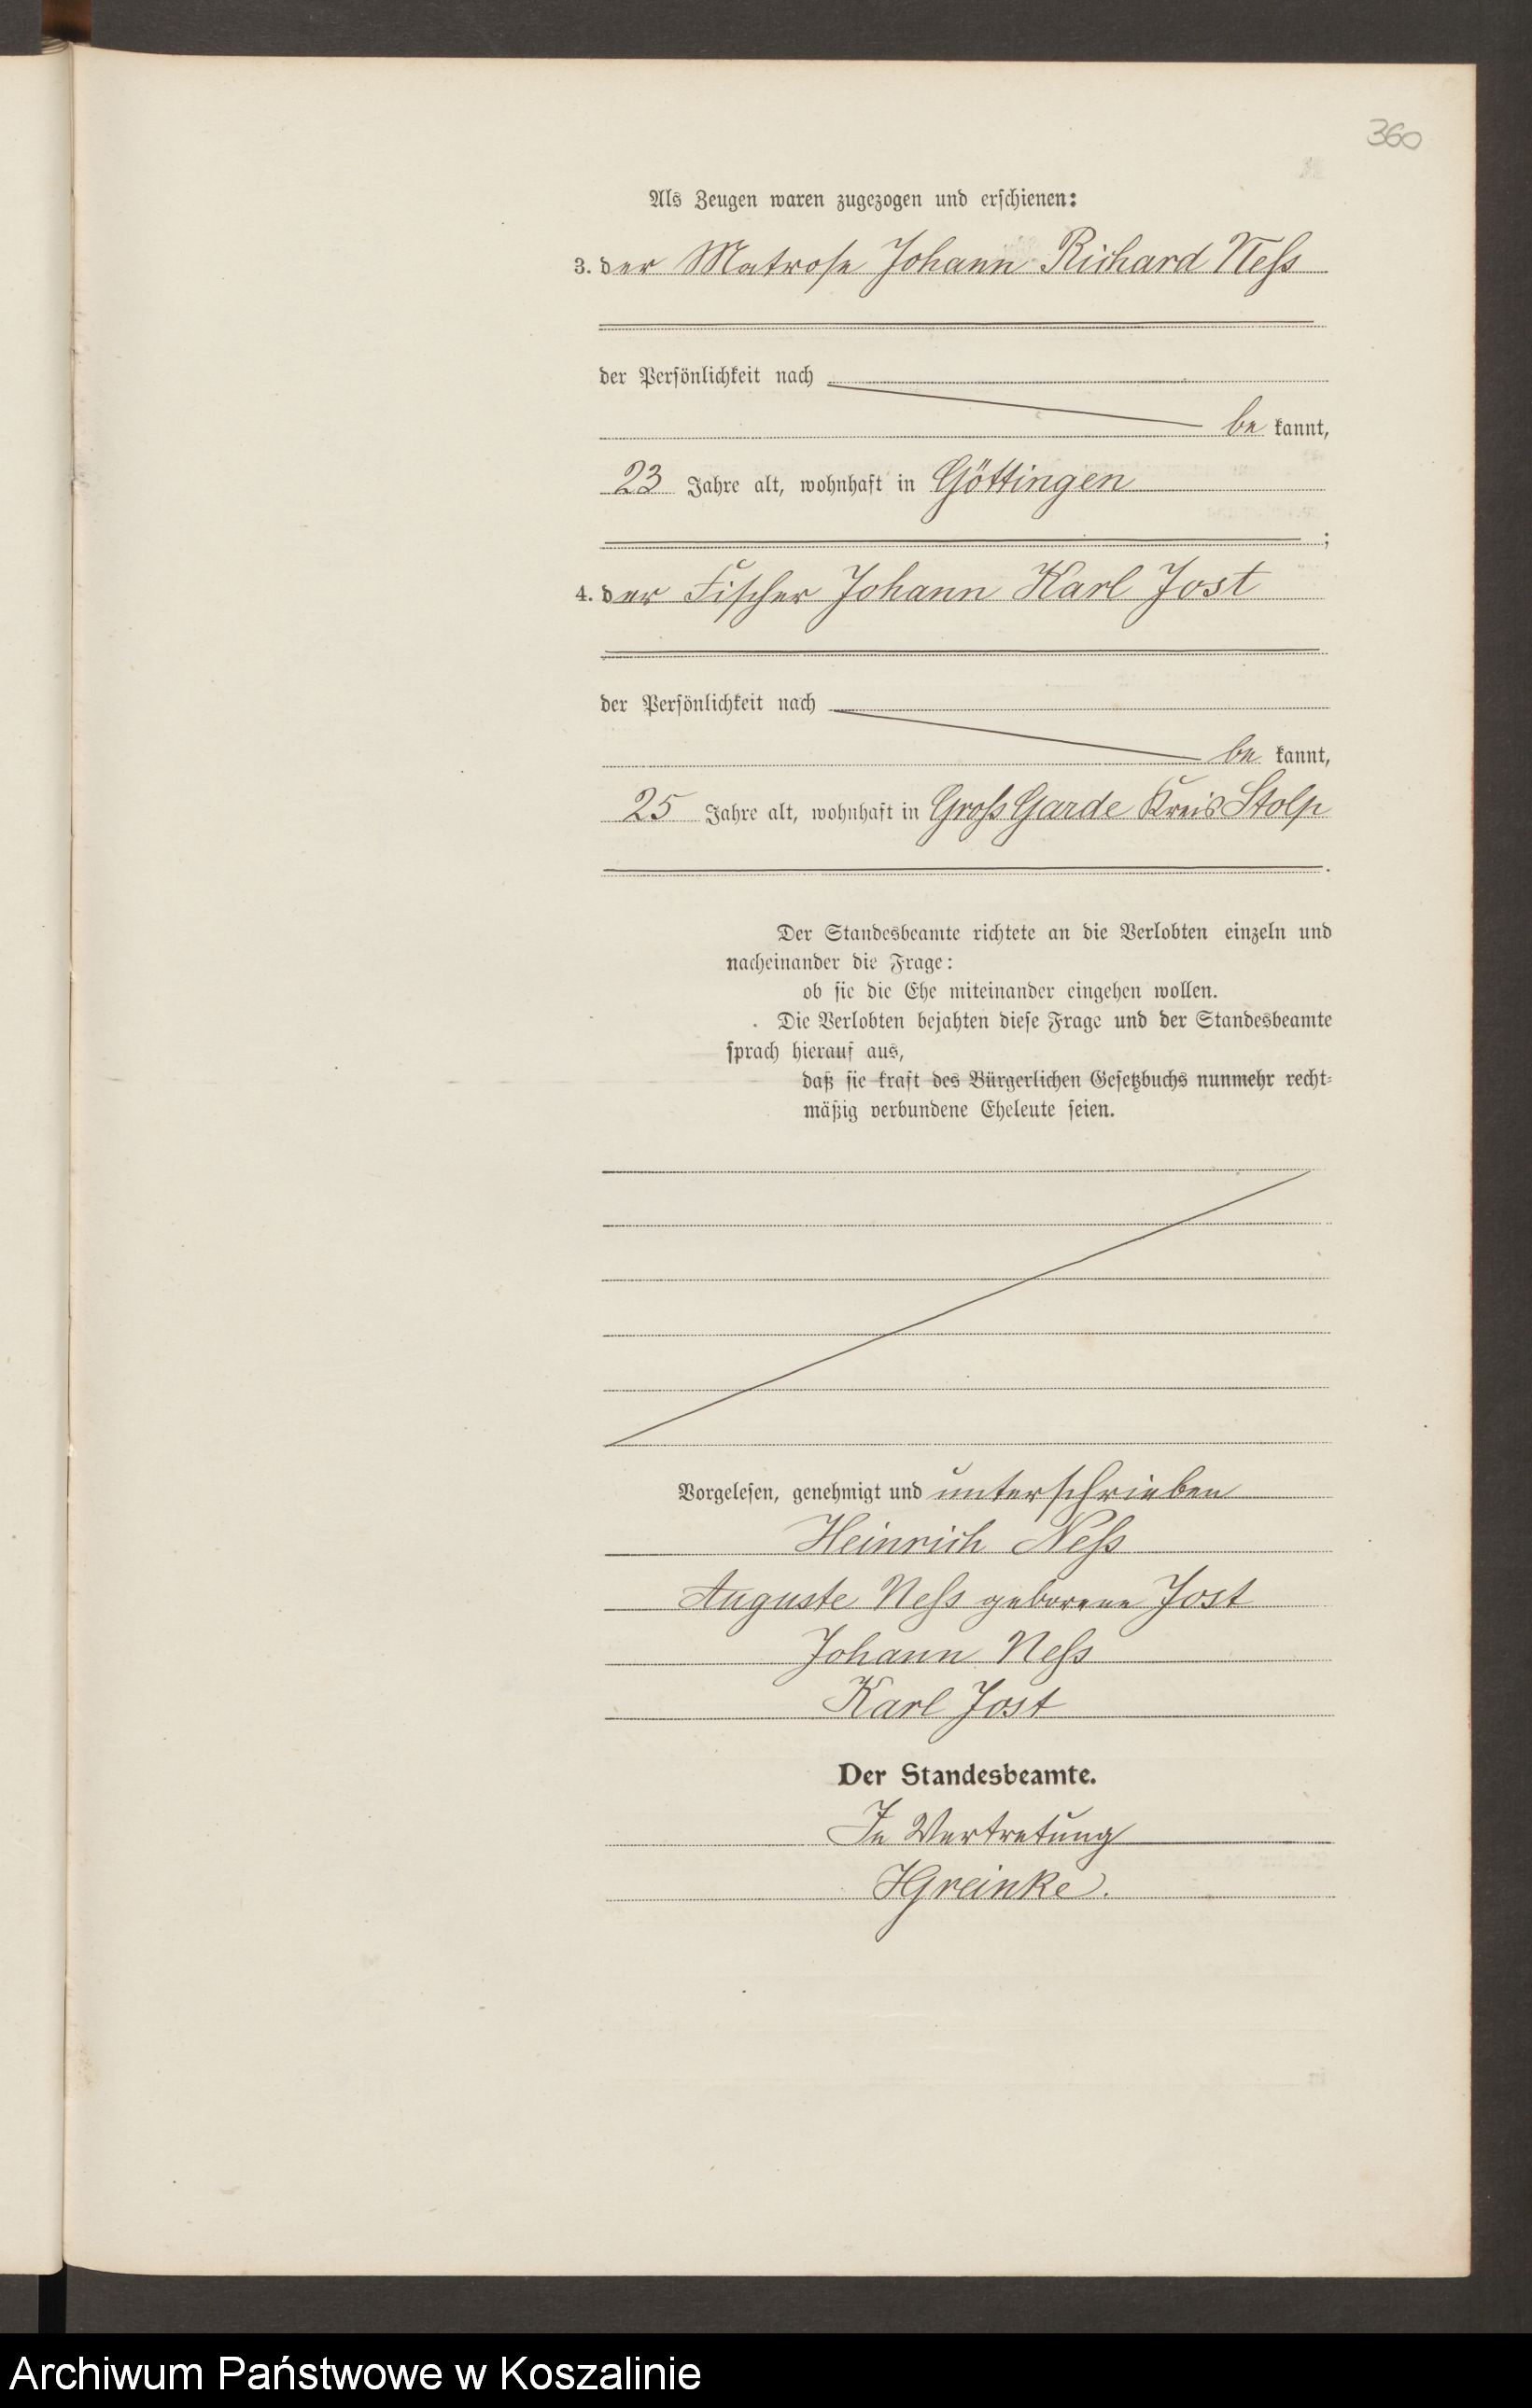 360
Als Zeugen waren zugezogen und erschienen:
3. der Matrose Johann Richard Neß
der Persönlichkeit nach
be kannt,
23 Jahre alt, wohnhaft in Göttingen
;
4. der Fischer Johann Karl Jost
der Persönlichkeit nach
be kannt,
25 Jahre alt, wohnhaft in Groß Garde Kreis Stolp
.
Der Standesbeamte richtete an die Verlobten einzeln und
nacheinander die Frage:
ob sie die Ehe miteinander eingehen wollen.
Die Verlobten bejahten diese Frage und der Standesbeamte
sprach hierauf aus,
daß sie kraft des Bürgerlichen Gesetzbuchs nunmehr recht-
mäßig verbundene Eheleute seien.
Vorgelesen, genehmigt und unterschrieben
Heinrich Neß
Auguste Neß geborene Jost
Johann Neß
Karl Jost
Der Standesbeamte.
In Vertretung
HGreinke.
Archiwum Państwowe w Koszalinie